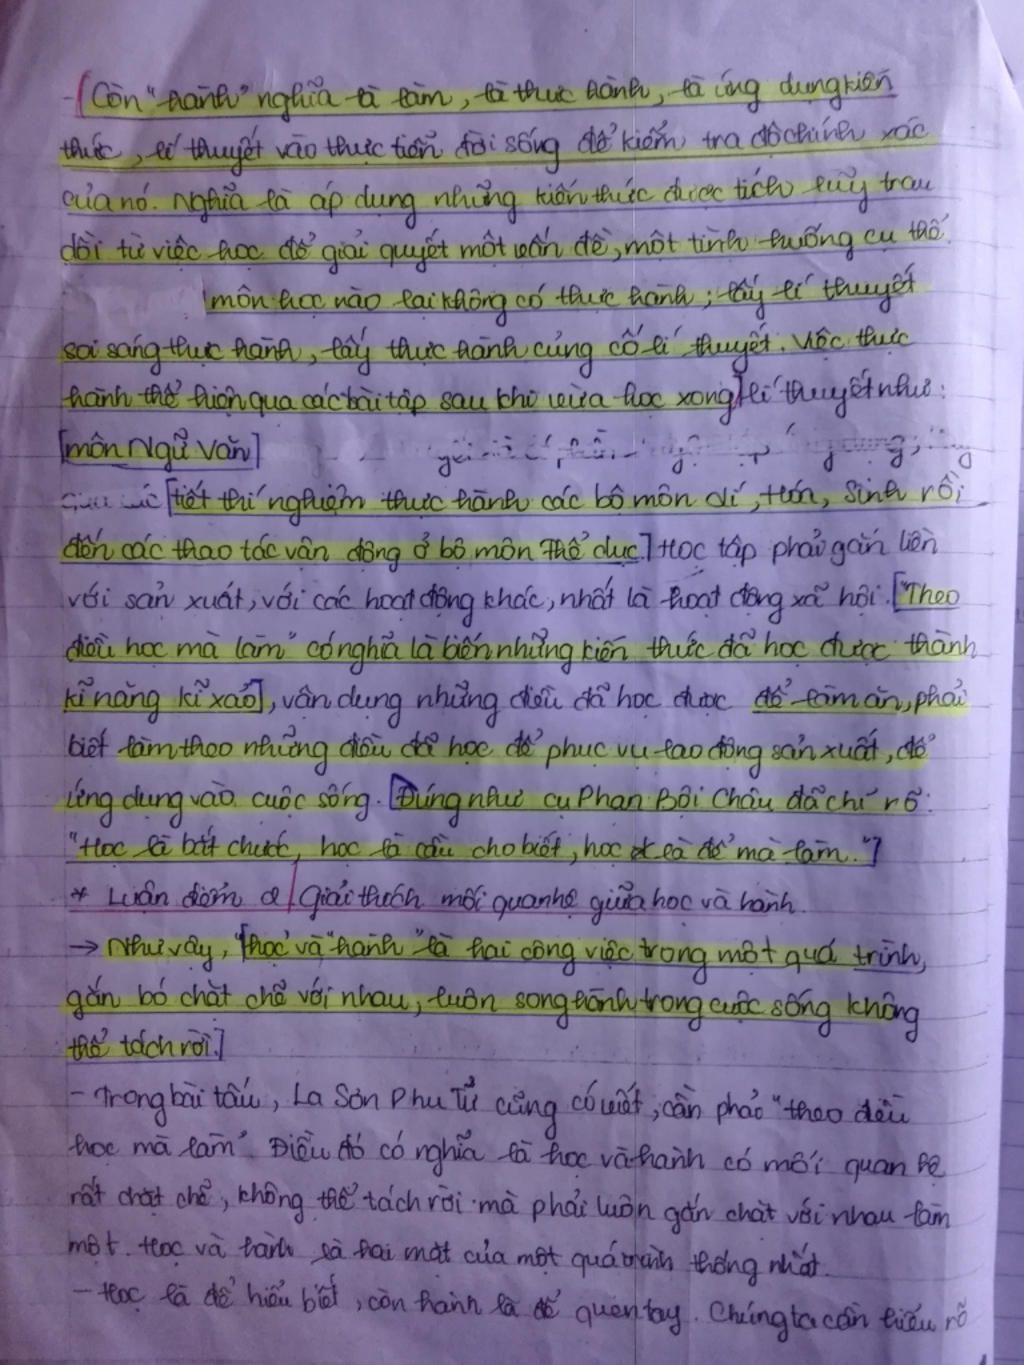 - Còn "hành" nghĩa là làm, là thực hành, là ứng dụng kiến
thức, lí thuyết vào thực tiễn đời sống để kiểm tra độ chính xác
của nó. Nghĩa là áp dụng những kiến thức được tích luỹ trau
dồi từ việc học để giải quyết một vấn đề, một tình huống cụ thể.
môn học nào lại không có thực hành; lấy lí thuyết
soi sáng thực hành, lấy thực hành củng cố lí thuyết. Việc thực
hành thể hiện qua các bài tập sau khi vừa học xong lí thuyết như:
[môn Ngữ Văn]
[tiết thí nghiệm thực hành các bộ môn Lí, Hóa, Sinh rồi
đến các thao tác vận động ở bộ môn Thể dục.] Học tập phải gắn liền
với sản xuất, với các hoạt động khác, nhất là hoạt động xã hội. ["Theo
điều học mà làm" có nghĩa là biến những kiến thức đã học được thành
kĩ năng kĩ xảo], vận dụng những điều đã học được để làm ăn, phải
biết làm theo những điều đã học để phục vụ lao động sản xuất, để
ứng dụng vào cuộc sống. [Đúng như cụ Phan Bội Châu đã chỉ rõ:
"Học là bắt chước, học là cầu cho biết, học là để mà làm."]
* Luận điểm 2 Giải thích mối quan hệ giữa học và hành.
→ Như vậy, ["học" và "hành" là hai công việc trong một quá trình,
gắn bó chặt chẽ với nhau, luôn song hành trong cuộc sống không
thể tách rời.]
- Trong bài tấu, La Sơn Phu Tử cũng có viết, cần phải "theo điều
học mà làm". Điều đó có nghĩa là học và hành có mối quan hệ
rất chặt chẽ, không thể tách rời mà phải luôn gắn chặt với nhau làm
một. Học và hành là hai mặt của một quá trình thống nhất.
- Học là để hiểu biết, còn hành là để quen tay. Chúng ta cần hiểu rõ